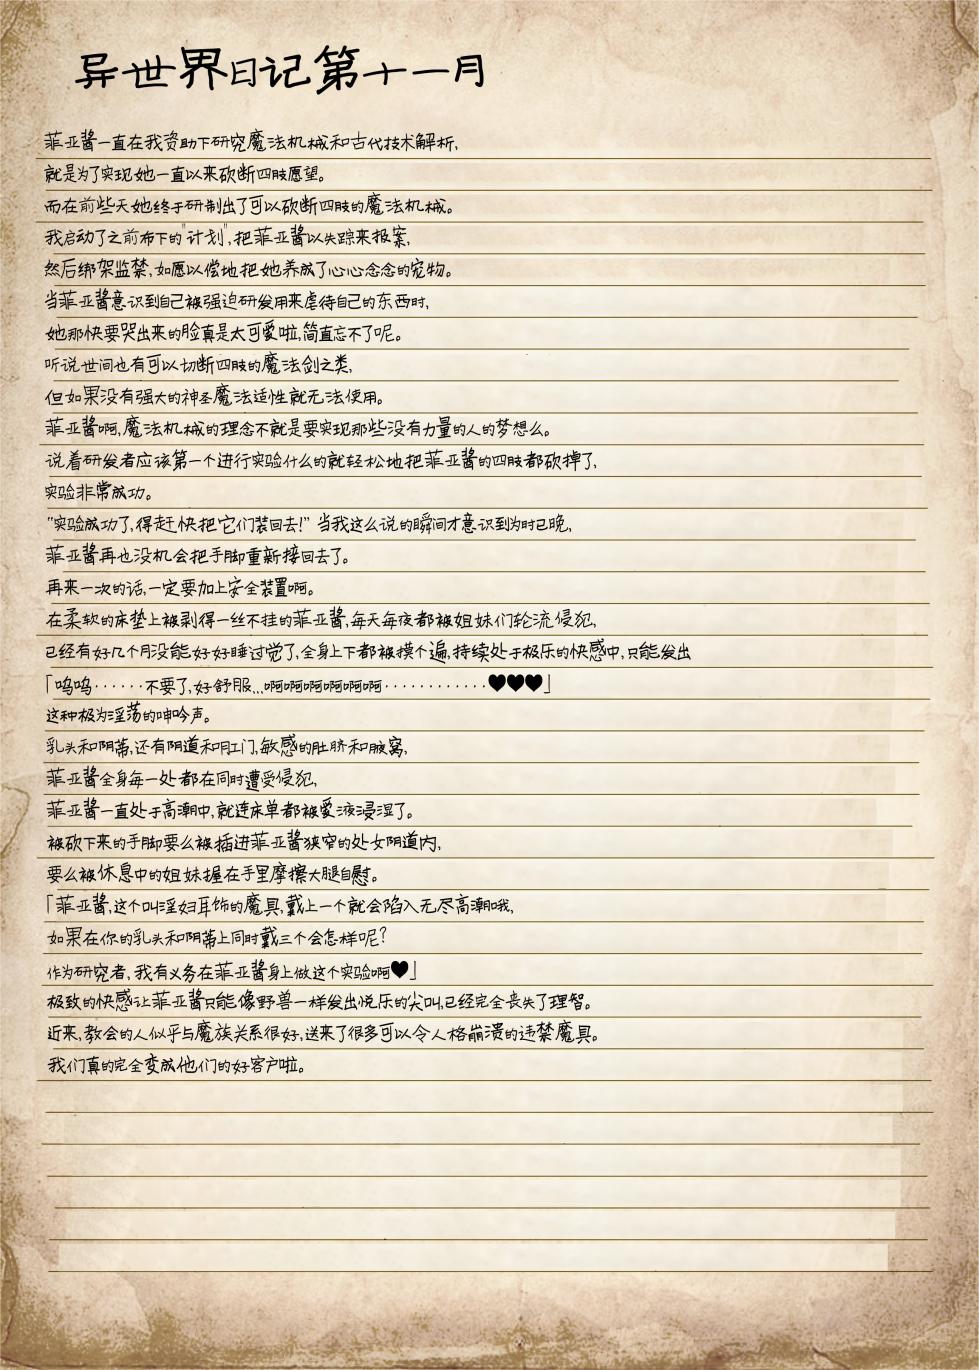 异世界日记第十一月
菲亚酱一直在我资助下研究魔法机械和古代技术解析,
就是为了实现她一直以来砍断四肢愿望。
而在前些天她终于研制出了可以砍断四肢的魔法机械。
我启动了之前布下的"计划",把菲亚酱以失踪来报案,
然后绑架监禁,如愿以偿地把她养成了心心念念的宠物。
当菲亚酱意识到自己被强迫研发用来虐待自己的东西时,
她那快要哭出来的脸真是太可爱啦,简直忘不了呢。
听说世间也有可以切断四肢的魔法剑之类,
但如果没有强大的神圣魔法适性就无法使用。
菲亚酱啊,魔法机械的理念不就是要实现那些没有力量的人的梦想么。
说着研发者应该第一个进行实验什么的就轻松地把菲亚酱的四肢都砍掉了,
实验非常成功。
"实验成功了,得赶快把它们装回去!" 当我这么说的瞬间才意识到为时已晚,
菲亚酱再也没机会把手脚重新接回去了。
再来一次的话,一定要加上安全装置啊。
在柔软的床垫上被剥得一丝不挂的菲亚酱,每天每夜都被姐妹们轮流侵犯,
已经有好几个月没能好好睡过觉了,全身上下都被摸个遍,持续处于极乐的快感中,只能发出
「呜呜······不要了,好舒服...啊啊啊啊啊啊啊············♥♥♥」
这种极为淫荡的呻吟声。
乳头和阴蒂,还有阴道和肛门,敏感的肚脐和腋窝,
菲亚酱全身每一处都在同时遭受侵犯,
菲亚酱一直处于高潮中,就连床单都被爱液浸湿了。
被砍下来的手脚要么被插进菲亚酱狭窄的处女阴道内,
要么被休息中的姐妹握在手里摩擦大腿自慰。
「菲亚酱,这个叫淫妇耳饰的魔具,戴上一个就会陷入无尽高潮哦,
如果在你的乳头和阴蒂上同时戴三个会怎样呢?
作为研究者,我有义务在菲亚酱身上做这个实验啊♥」
极致的快感让菲亚酱只能像野兽一样发出悦乐的尖叫,已经完全丧失了理智。
近来,教会的人似乎与魔族关系很好,送来了很多可以令人格崩溃的违禁魔具。
我们真的完全变成他们的好客户啦。